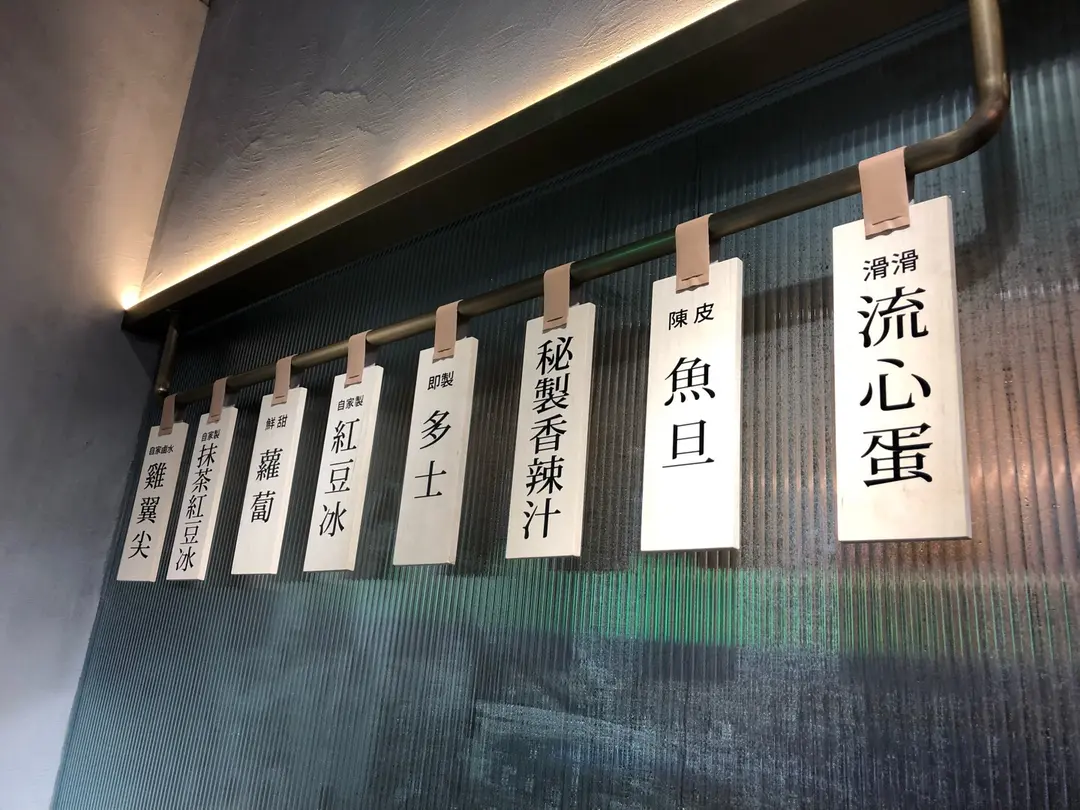 自家鹵水
雞翼尖
自家製
抹茶紅豆冰
鮮甜
蘿蔔
自家製
紅豆冰
即製
多士
秘製香辣汁
陳皮
魚旦
滑滑
流心蛋